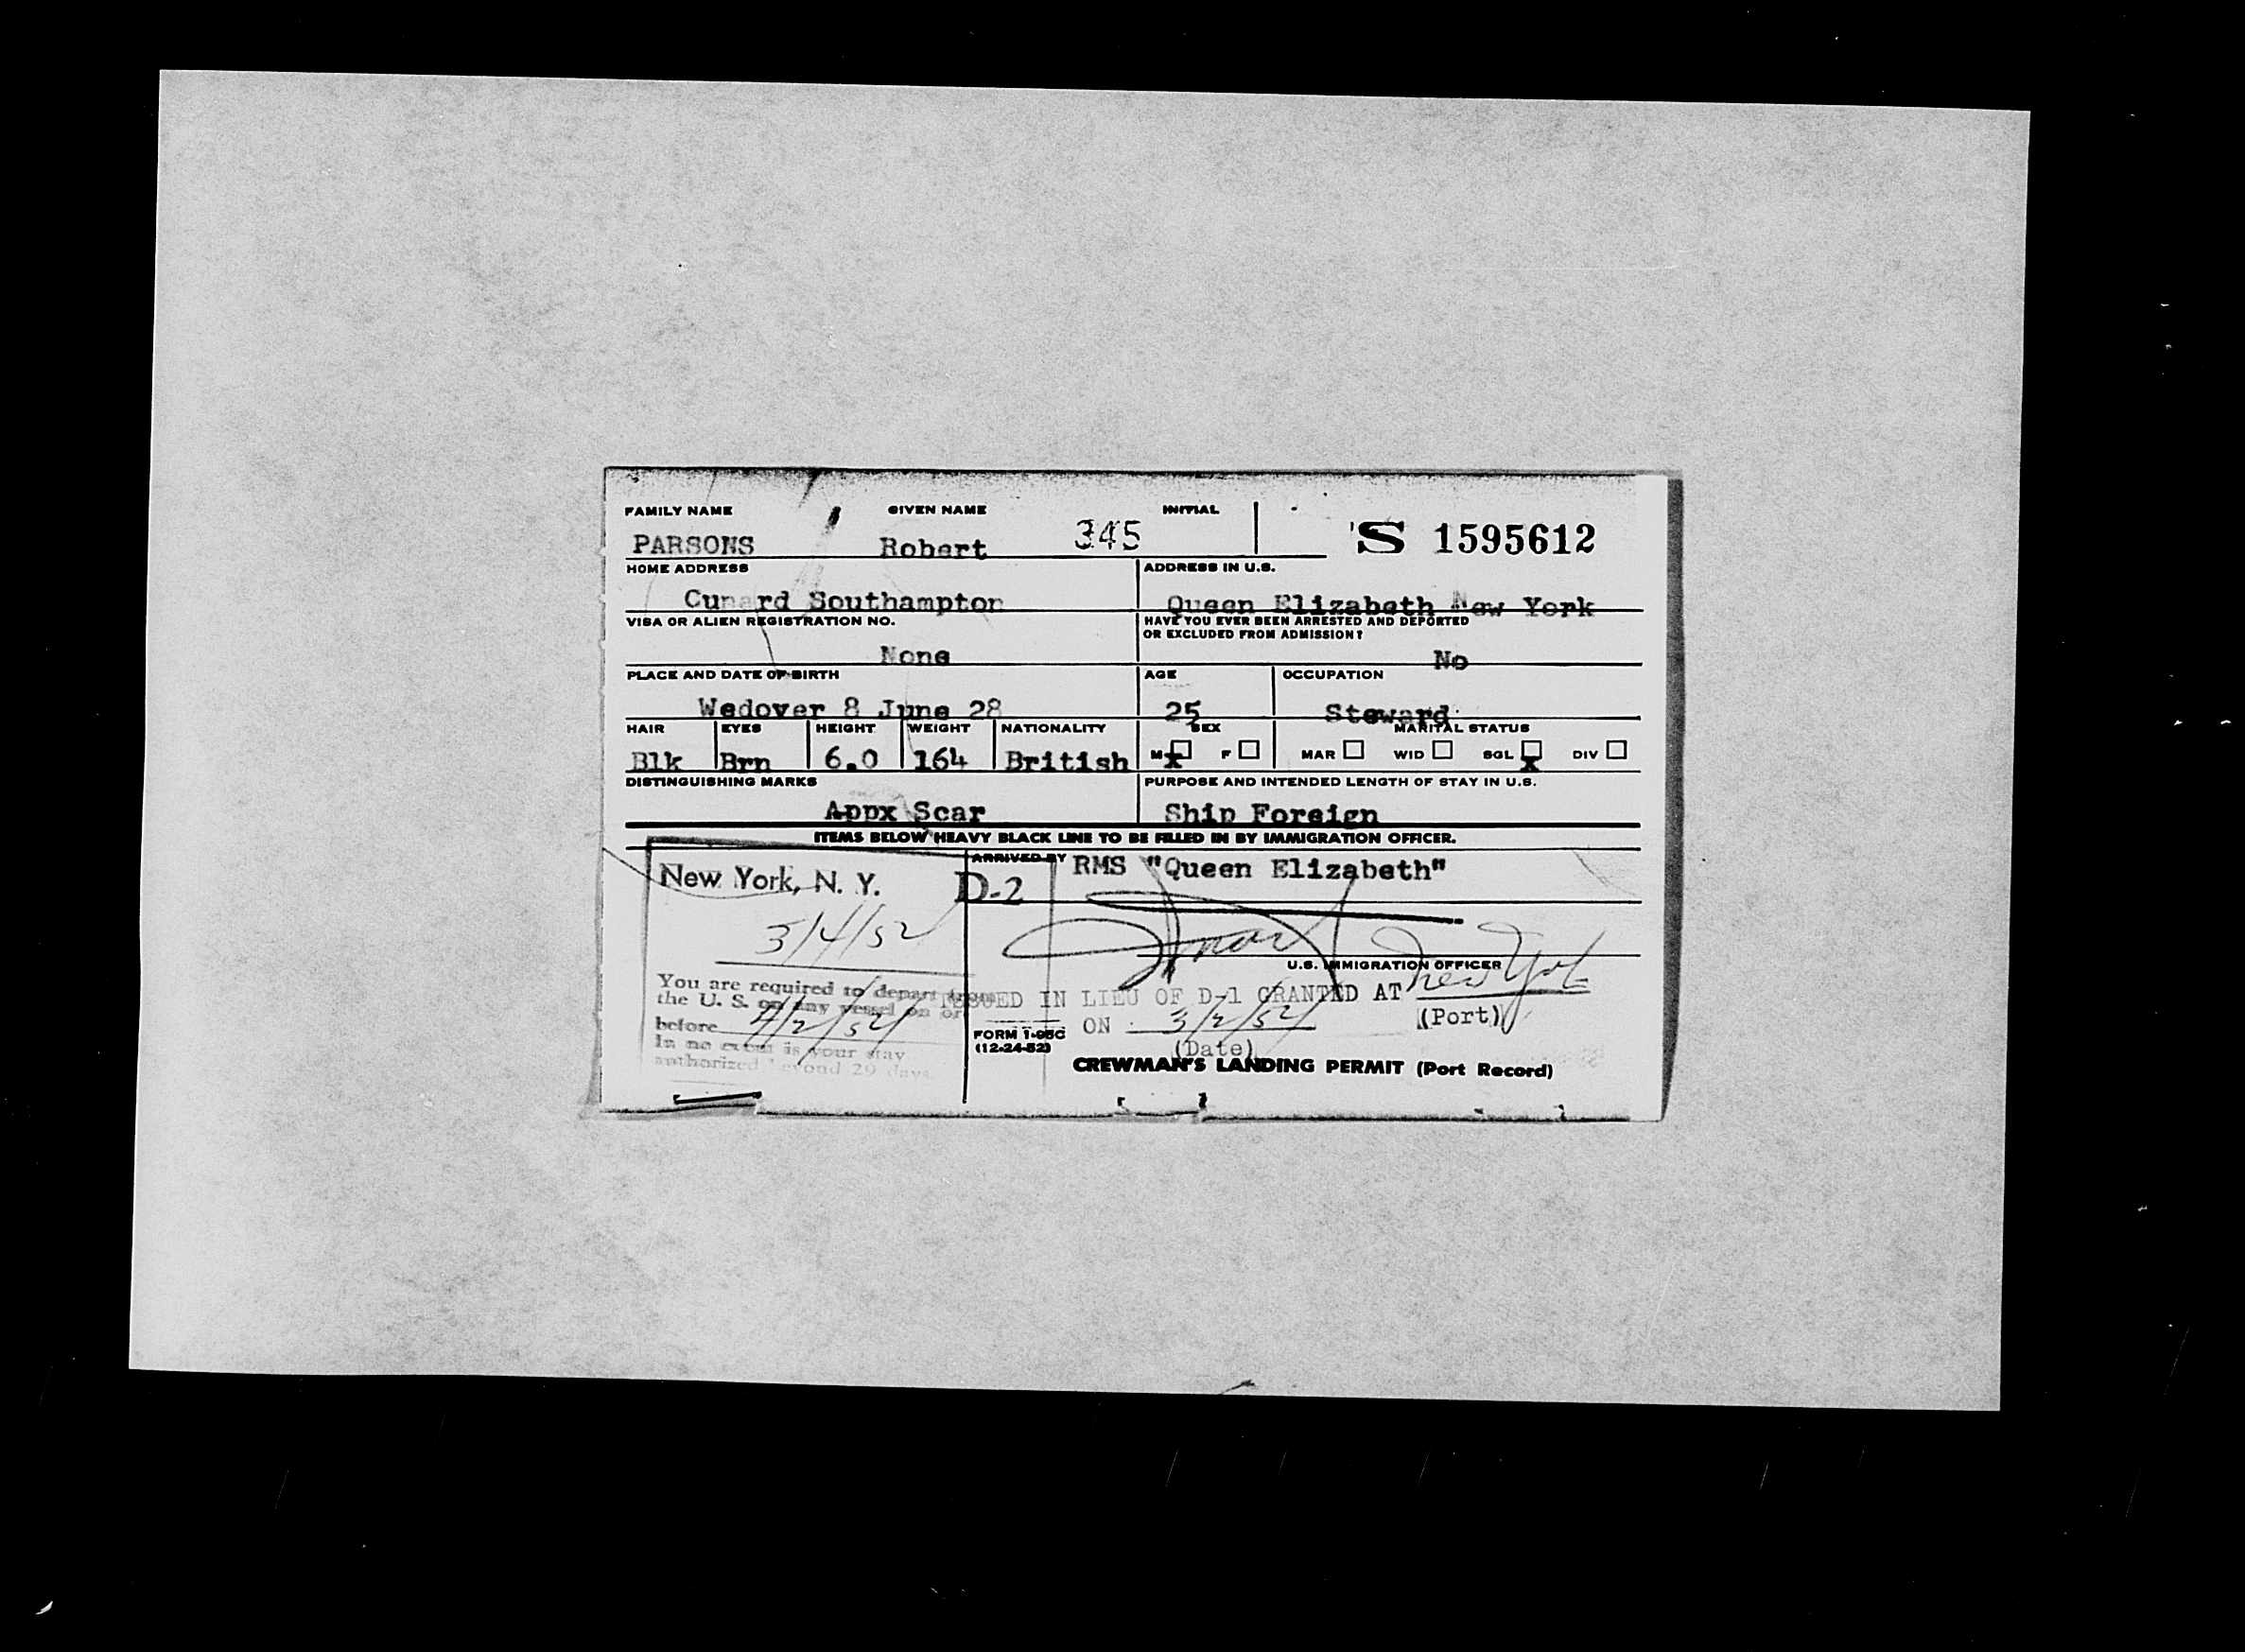 FAMILY NAME GIVEN NAME INITIAL
PARSONS Robert 345 S 1595612
HOME ADDRESS ADDRESS IN U.S.
Cunard Southampton Queen Elizabeth New York
VISA OR ALIEN REGISTRATION NO. HAVE YOU EVER BEEN ARRESTED AND DEPORTED
OR EXCLUDED FROM ADMISSION?
None No
PLACE AND DATE OF BIRTH AGE OCCUPATION
Wedover 8 June 28 25 Steward
HAIR EYES HEIGHT WEIGHT NATIONALITY SEX MARITAL STATUS
Blk Brn 6.0 164 British M x F MAR WID SGL x DIV
DISTINGUISHING MARKS PURPOSE AND INTENDED LENGTH OF STAY IN U.S.
Appx Scar Ship Foreign
ITEMS BELOW HEAVY BLACK LINE TO BE FILLED IN BY IMMIGRATION OFFICER.
ARRIVED BY RMS "Queen Elizabeth"
New York, N. Y. D-2
U.S. IMMIGRATION OFFICER
You are required to depart from
the U. S. on any vessel on or
before
In no event is your stay
authorized beyond 29 days
ISSUED IN LIEU OF D-1 GRANTED AT New York
(Port)
ON
(Date)
FORM I-95C
(12-24-52)
CREWMAN'S LANDING PERMIT (Port Record)